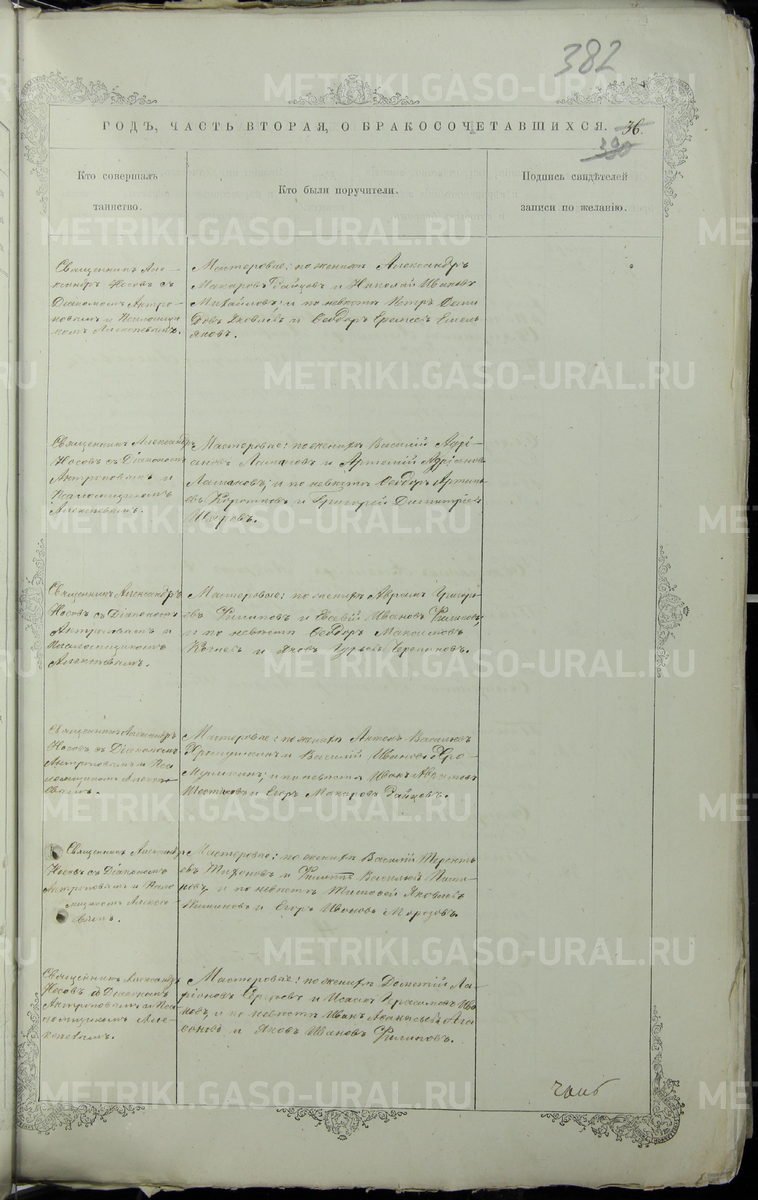 382
ГОДЪ, ЧАСТЬ ВТОРАЯ, О БРАКОСОЧЕТАВШИХСЯ.
36.
380
Кто совершалъ
таинство.
Кто были поручители.
Подпись свидѣтелей
записи по желанію.
Священникъ Але-
ксандръ Носовъ съ
Діакономъ Антро-
повымъ и Псаломщи-
комъ Алексѣевымъ.
Мастеровые: по женихѣ Александръ
Макаровъ Зайцовъ и Николай Ивановъ
Михайловъ; и по невѣстѣ Петръ
Яковлевъ и Ѳеодоръ Емель
яновъ.
Священникъ Александръ
Носовъ съ Діакономъ
Антроповымъ и
Псаломщикомъ
Алексѣевымъ.
Мастеровые: по женихѣ Василій Адрі-
ановъ и Артемій Адріановъ
и по невѣстѣ Ѳеодоръ
Коротковъ и Григорій Димитріевъ
Священникъ Александръ
Носовъ съ Діакономъ
Антроповымъ и
Псаломщикомъ
Алексѣевымъ.
Мастеровые: по женихѣ Аврамъ Григорь-
евъ Филиповъ и Ивановъ Филиповъ,
и по невѣстѣ Ѳеодоръ Максимовъ
и Яковъ Гурьевъ Черепановъ.
Священникъ Александръ
Носовъ съ Діакономъ
Антроповымъ и Пса-
ломщикомъ Алексѣ-
евымъ.
Мастеровые: по женихѣ Антонъ Васильевъ
и Василій Ивановъ
и по невѣстѣ Иванъ
и Егоръ Макаровъ Зайцовъ.
Священникъ Александръ
Носовъ съ Діакономъ
Антроповымъ и Псало-
мщикомъ Алексѣ-
евымъ.
Мастеровые: по женихѣ Василій Терентьь
евъ Тихоновъ и Филиппъ Васильевъ
и по невѣстѣ Тимоѳей Яковлевъ
и Егоръ Ивановъ Морозовъ.
Священникъ Александръ
Носовъ съ Діакономъ
Антроповымъ и Пса-
ломщикомъ Але-
ксѣевымъ.
Мастеровые: по женихѣ Дометій Ла-
ріоновъ и Исакъ Ива-
новъ, и по невѣстѣ Иванъ Аѳанасьевъ Ага-
фоновъ и Яковъ Ивановъ Филиповъ.
METRIKI.GASO-URAL.RU